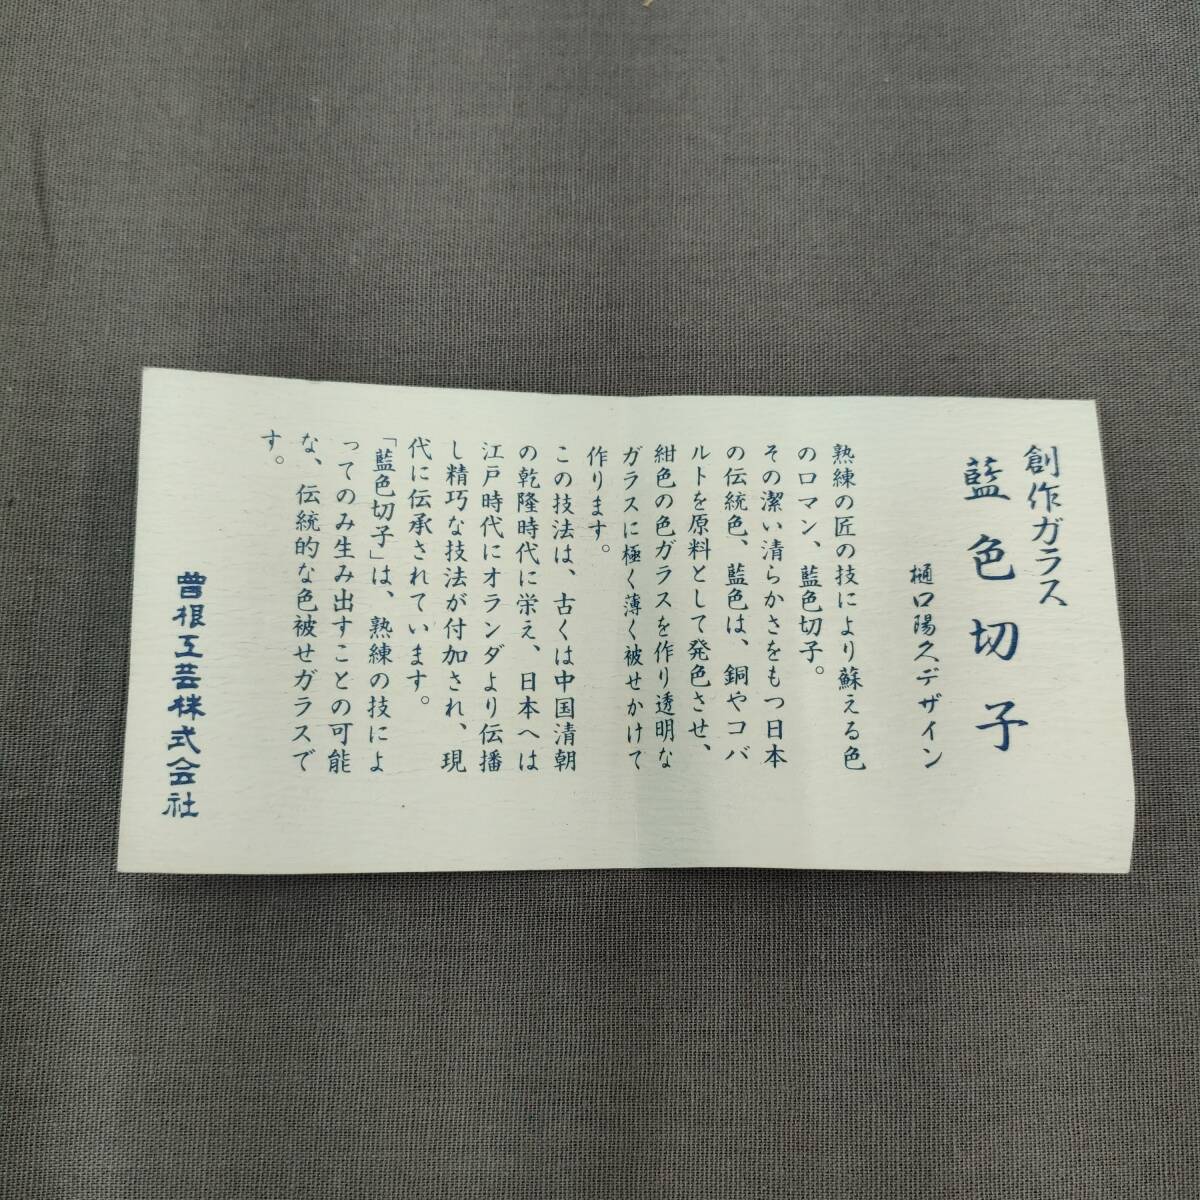 創作ガラス
藍色切子
樋口陽久デザイン
熟練の匠の技により蘇える色
のロマン、藍色切子。
その潔い清らかさをもつ日本
の伝統色、藍色は、銅やコバ
ルトを原料として発色させ、
紺色の色ガラスを作り透明な
ガラスに極く薄く被せかけて
作ります。
この技法は、古くは中国清朝
の乾隆時代に栄え、日本へは
江戸時代にオランダより伝播
し精巧な技法が付加され、現
代に伝承されています。
「藍色切子」は、熟練の技によ
ってのみ生み出すことの可能
な、伝統的な色被せガラスで
す。
曽根工芸株式会社